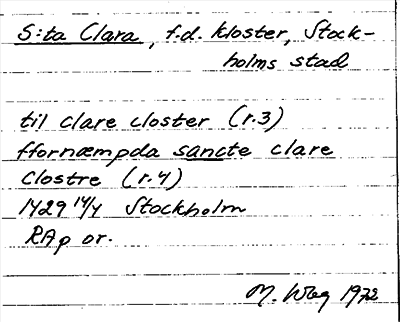 S:ta Clara, f.d. kloster, Stock-
holms stad
til clare closter (r.3)
ffornæmpda sancte clare
clostre (r.4)
1429 14/4 Stockholm
RAp or.
M. Wbg 1972